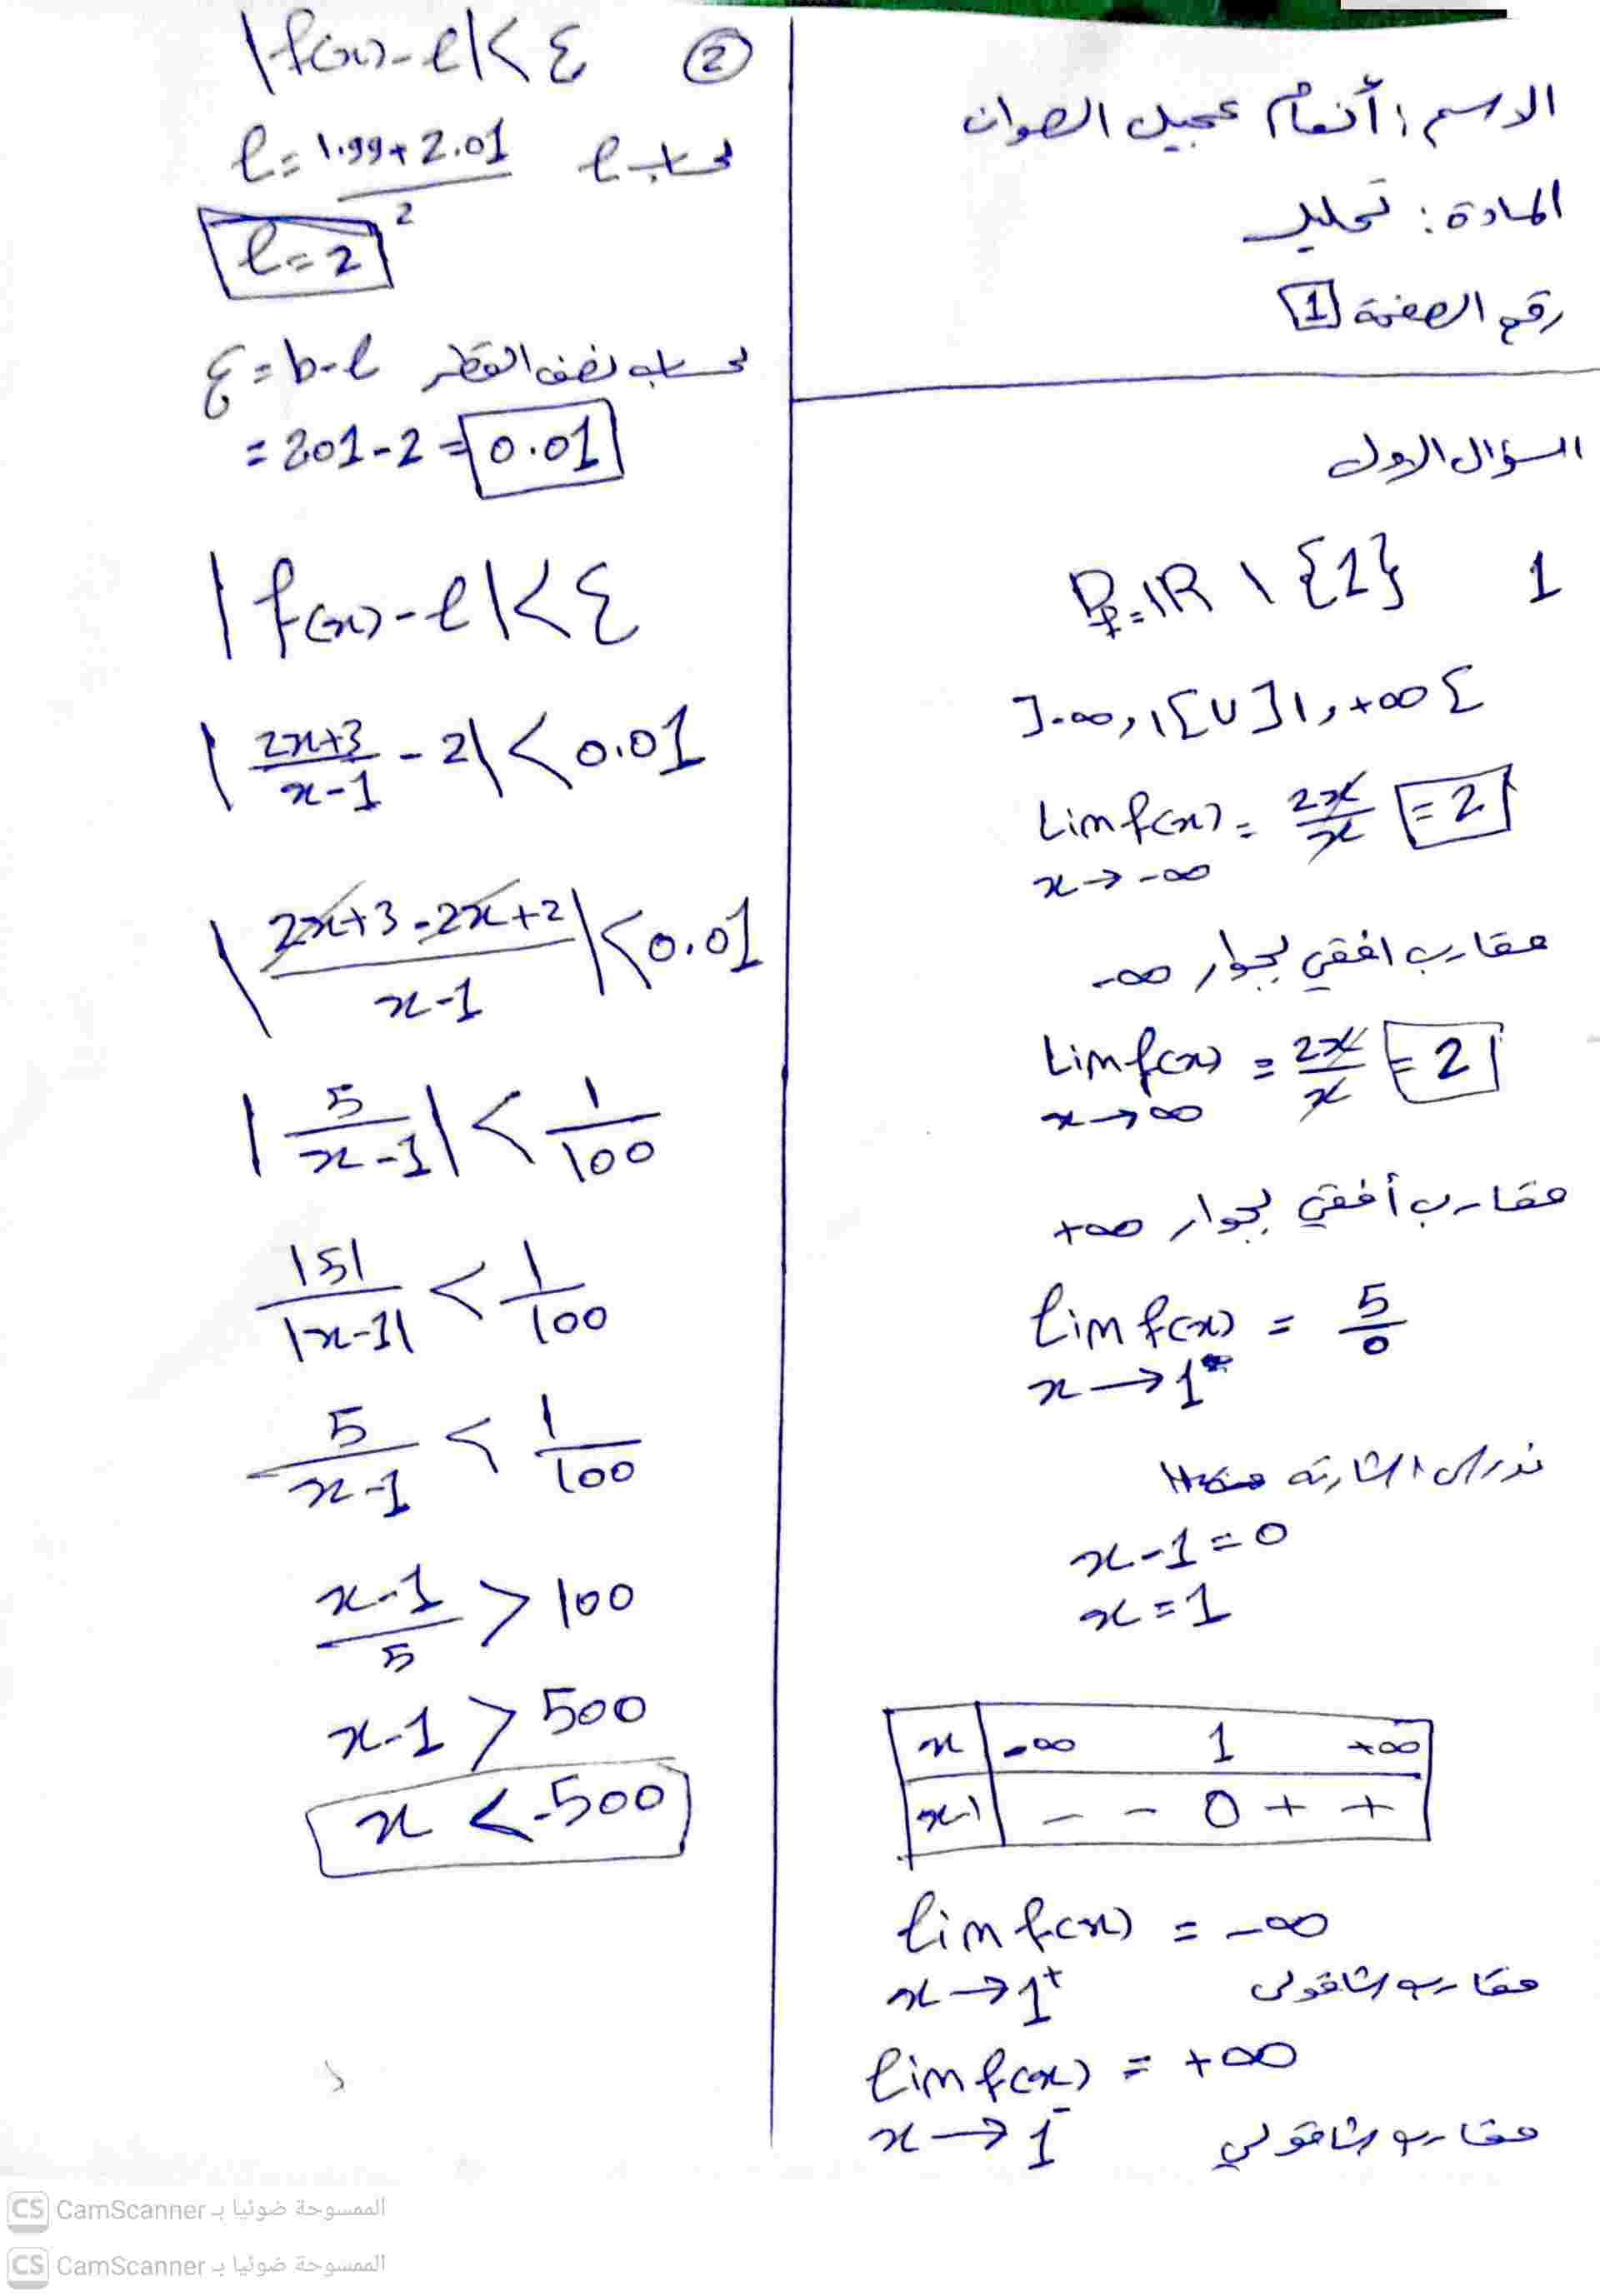 الاسم: أنعام عجيل الصوان
المادة: تحليل
رقم الصفحة 1
السؤال الاول
1 D_f = ℝ \ {1}
]-∞, 1[ ∪ ]1, +∞[
lim f(x) = 2x/x = 2
x → -∞
مقارب افقي بجوار -∞
lim f(x) = 2x/x = 2
x → ∞
مقارب أفقي بجوار +∞
lim f(x) = 5/0
x → 1
ندرس اشارته
x-1=0
x=1
x -∞ 1 +∞
x-1 - - 0 + +
lim f(x) = -∞
x → 1⁺ مقارب شاقولي
lim f(x) = +∞
x → 1⁻ مقارب شاقولي
② |f(x)-ℓ|<ε
لحساب ℓ ℓ = (1.99+2.01)/2
ℓ=2
لحساب نصف القطر ε = b-ℓ
= 201-2 = 0.01
|f(x)-ℓ|<ε
|(2x+3)/(x-1) - 2| < 0.01
|(2x+3-2x+2)/(x-1)| < 0.01
|5/(x-1)| < 1/100
|5|/|x-1| < 1/100
5/(x-1) < 1/100
(x-1)/5 > 100
x-1 > 500
x < -500
الممسوحة ضوئيا بـ CamScanner
الممسوحة ضوئيا بـ CamScanner